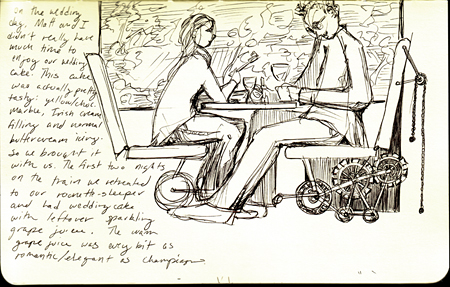 On the wedding
day, Matt and I
didn't really have
much time to
enjoy our wedding
cake. This cake
was actually pretty
tasty: yellow/choc.
marble, Irish cream
filling and normal
buttercream icing.
So we brought it
with us. The first two nights
on the train we retreated
to our roomette-sleeper
and had wedding cake
with leftover sparkling
grape juice. The warm
grape juice was every bit as
romantic/elegant as champagne